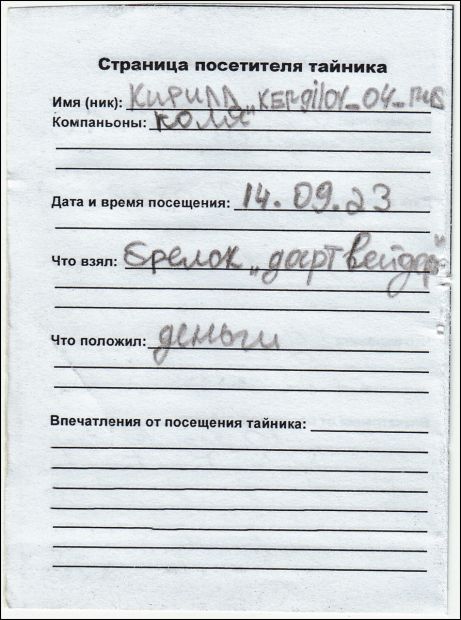 Страница посетителя тайника
Имя (ник): Кирилл „
Компаньоны: Коля
Дата и время посещения: 14.09.23
Что взял: брелок „дарт вейдер“
Что положил: деньги
Впечатления от посещения тайника: